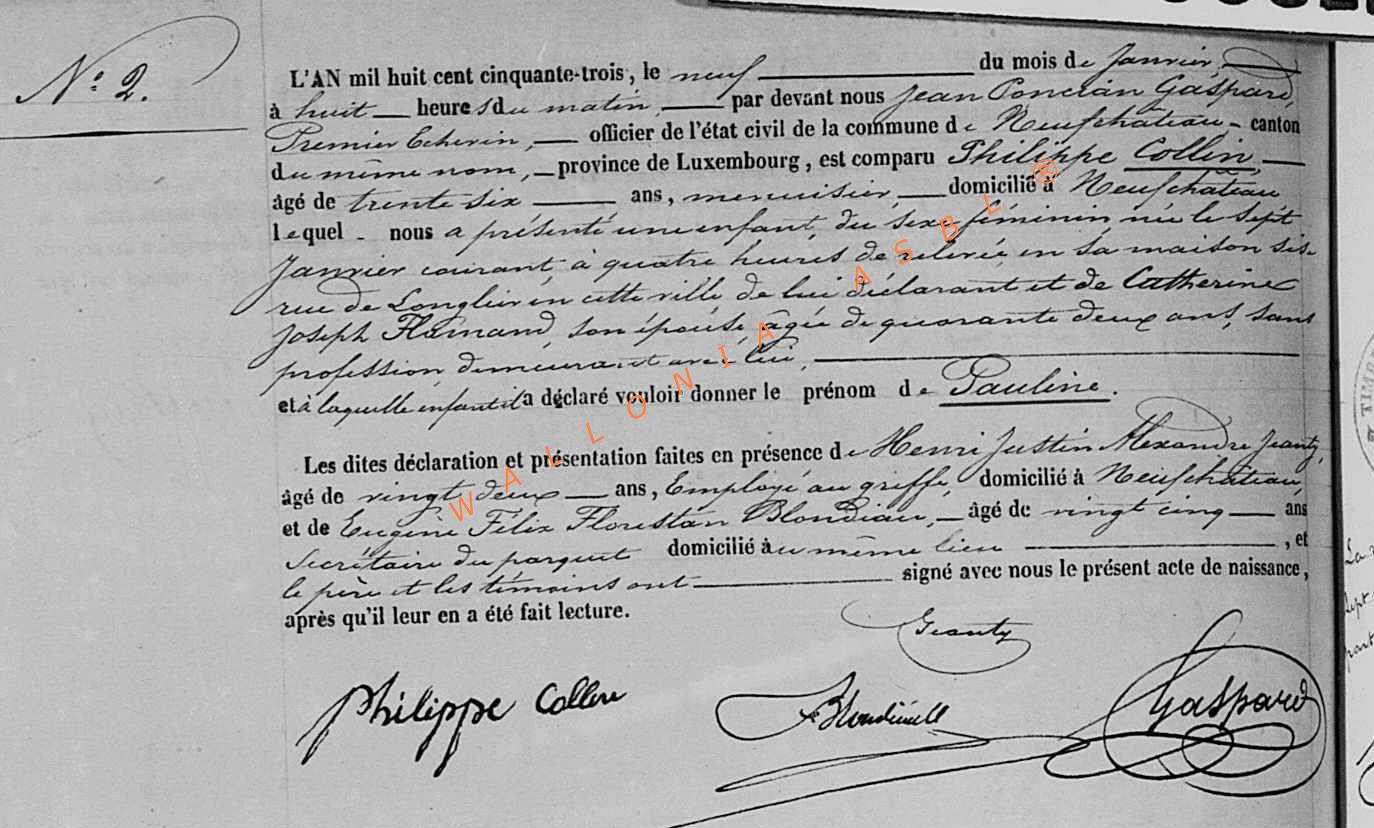 N.º 2.
L'AN mil huit cent cinquante-trois, le neuf du mois de Janvier,
à huit heures du matin, par devant nous Jean Poncian Gaspard,
Premier Echevin, officier de l'état civil de la commune de Neufchateau - canton
du même nom, province de Luxembourg, est comparu Philippe Collin,
âgé de trente six ans, menuisier, domicilié à Neufchâteau
lequel nous a présenté une enfant du sexe féminin née le sept
Janvier courant à quatre heures de relevée en sa maison sise
rue de Longlier en cette ville de lui déclarant et de Catherine
Joseph Flamand, son épouse âgée de quarante deux ans, sans
profession demeurant avec lui,
et à laquelle enfant il a déclaré vouloir donner le prénom de Pauline.
Les dites déclaration et présentation faites en présence de Henri Justin Alexandre Jeanty,
âgé de vingt deux ans, Employé au greffe, domicilié à Neufchâteau,
et de Eugène Félix Florestan Blondiau, âgé de vingt cinq ans
Secrétaire du parquet domicilié au même lieu, et
le père et les témoins ont signé avec nous le présent acte de naissance,
après qu'il leur en a été fait lecture.
Jeanty
Philippe Collin
Gaspard
WALLONIA ASBL ®